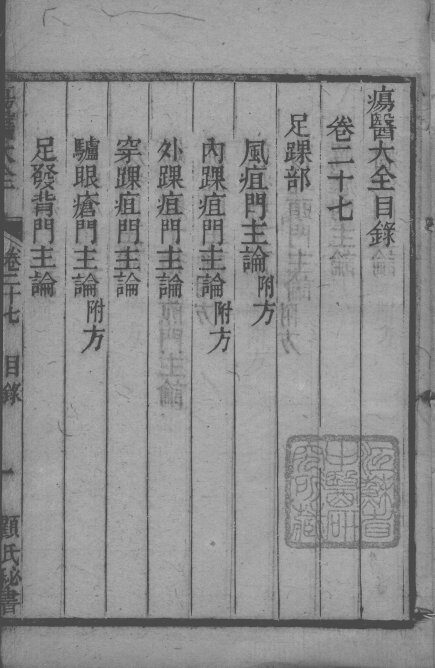 瘍醫大全目錄
卷二十七
足踝部
風疽門主論附方
內踝疽門主論附方
外踝疽門主論
穿踝疽門主論
驢眼瘡門主論附方
足發背門主論
瘍醫大全 卷二十七 目錄 一 顧氏秘書